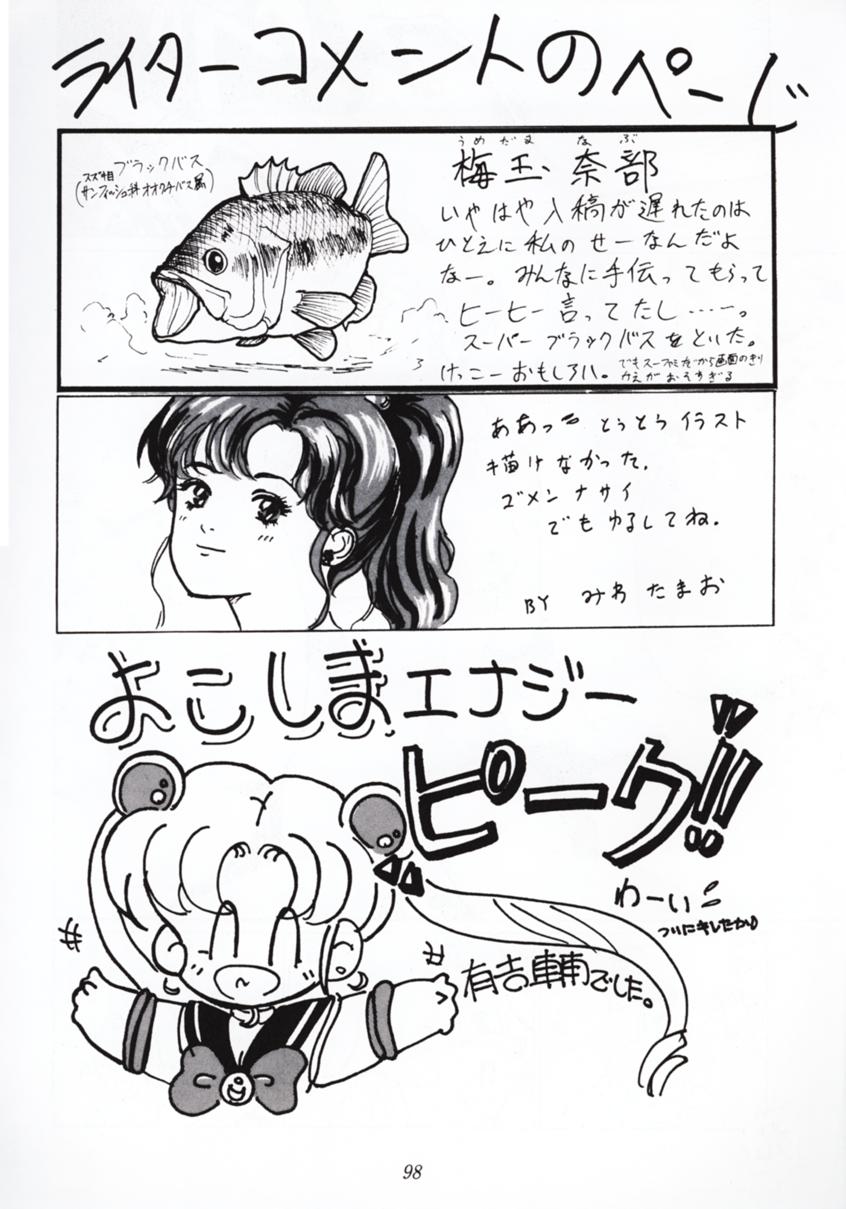 ライターコメントのページ
スズキ目 ブラックバス
(サンフィッシュ科オオクチバス属)
うめだま なぶ
梅玉 奈部
いやはや入稿が遅れたのは
ひとえに私のせーなんだよ
なー。みんなに手伝ってもらって
ヒーヒー言ってたし……。
スーパーブラックバスをといた。
けっこーおもしろい。
でもスーファミだから画面のきり
かえがおそすぎる
ああっ とうとうイラスト
描けなかった.
ゴメンナサイ
でもゆるしてね.
BY みわ たまお
よこしまエナジー
ピーク!!
わーい
ついにキレたか
有吉 でした。
98